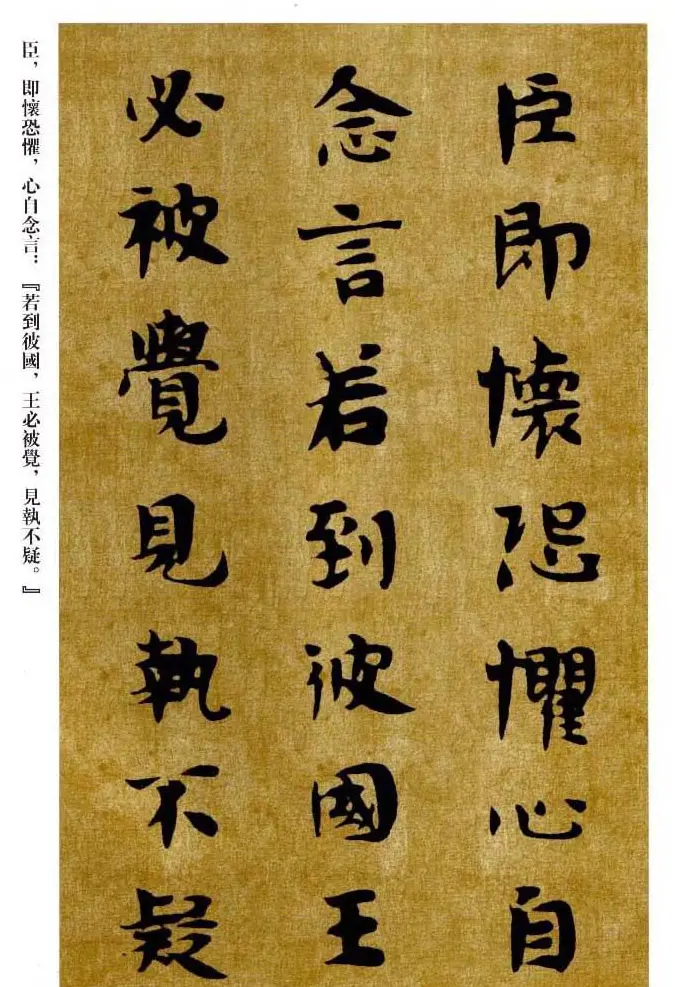 臣即懷恐懼心自
念言若到彼國王
必被覺見執不疑
臣，即懷恐懼，心自念言：『若到彼國，王必被覺，見執不疑。』